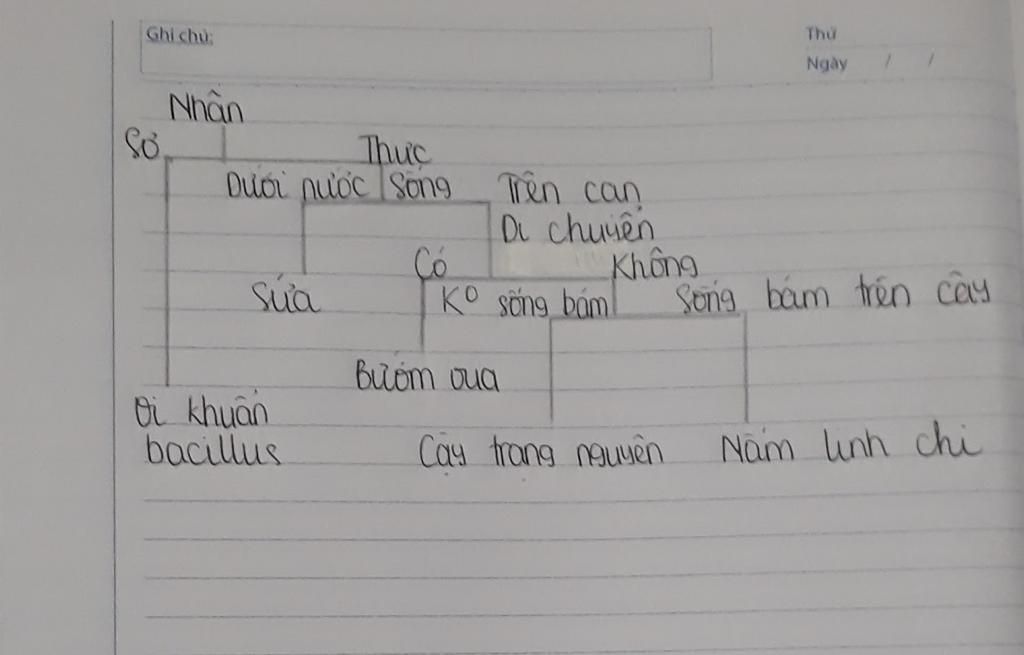 Ghi chú:
Thứ
Ngày / /
Nhân
Sơ Thực
Dưới nước Sống Trên cạn
Di chuyển
Có Không
Sứa K° sống bám Sống bám trên cây
Bướm vua
Vi khuẩn
bacillus Cây trạng nguyên Nấm linh chi